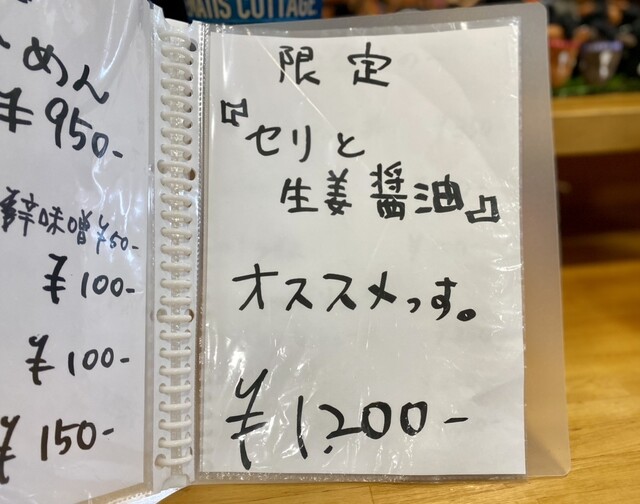 MATIS COTTAGE
めん
¥950-
辛味噌¥50-
¥100-
¥100-
¥150-
限定
『セリと
生姜醤油』
オススメっす。
¥1,200-